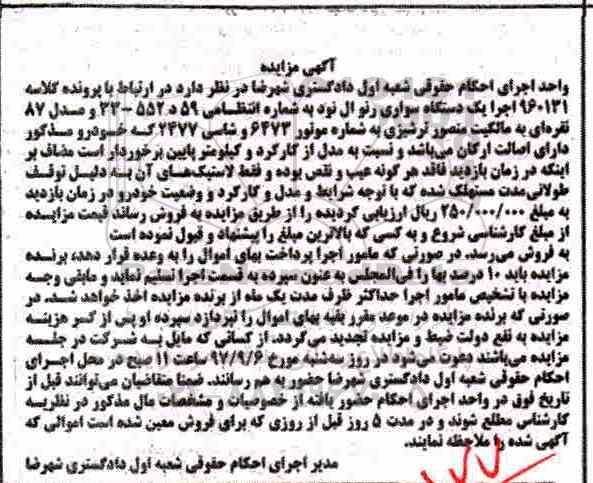 آگهی مزایده
واحد اجرای احکام حقوقی شعبه اول دادگستری شهرضا در نظر دارد در ارتباط با پرونده کلاسه
۹۶۰۱۳۱ اجرا یک دستگاه سواری رنو ال نود به شماره انتظامی ۵۹ د ۵۵۲ -۳۳ و مدل ۸۷
نقره‌ای به مالکیت منصور ترشیزی به شماره موتور ۶۴۷۳ و شاسی ۲۴۷۷ که خودرو مذکور
دارای اصالت ارکان می‌باشد و نسبت به مدل از کارکرد و کیلومتر پایین برخوردار است مضاف بر
اینکه در زمان بازدید فاقد هر گونه عیب و نقص بوده و فقط لاستیک‌های آن به دلیل توقف
طولانی‌مدت مستهلک شده که با توجه شرایط و مدل و کارکرد و وضعیت خودرو در زمان بازدید
به مبلغ ۲۵۰/۰۰۰/۰۰۰ ریال ارزیابی گردیده را از طریق مزایده به فروش رساند قیمت مزایده
از مبلغ کارشناسی شروع و به کسی که بالاترین مبلغ را پیشنهاد و قبول نموده است
به فروش می‌رسد. در صورتی که مامور اجرا پرداخت بهای اموال را به وعده قرار دهد، برنده
مزایده باید ۱۰ درصد بها را فی‌المجلس به عنون سپرده به قسمت اجرا تسلیم نماید و مابقی وجه
مزایده با تشخیص مامور اجرا حداکثر ظرف مدت یک ماه از برنده مزایده اخذ خواهد شد. در
صورتی که برنده مزایده در موعد مقرر بقیه بهای اموال را نپردازد سپرده او پس از کسر هزینه
مزایده به نفع دولت ضبط و مزایده تجدید می‌گردد. از کسانی که مایل به شرکت در جلسه
مزایده می‌باشند دعوت می‌شود در روز سه‌شنبه مورخ ۹۷/۹/۶ ساعت ۱۱ صبح در محل اجرای
احکام حقوقی شعبه اول دادگستری شهرضا حضور به هم رسانند. ضمنا متقاضیان می‌توانند قبل از
تاریخ فوق در واحد اجرای احکام حضور یافته از خصوصیات و مشخصات مال مذکور در نظریه
کارشناس مطلع شوند و در مدت ۵ روز قبل از روزی که برای فروش معین شده است اموالی که
آگهی شده را ملاحظه نمایند.
مدیر اجرای احکام حقوقی شعبه اول دادگستری شهرضا
۱۷۷